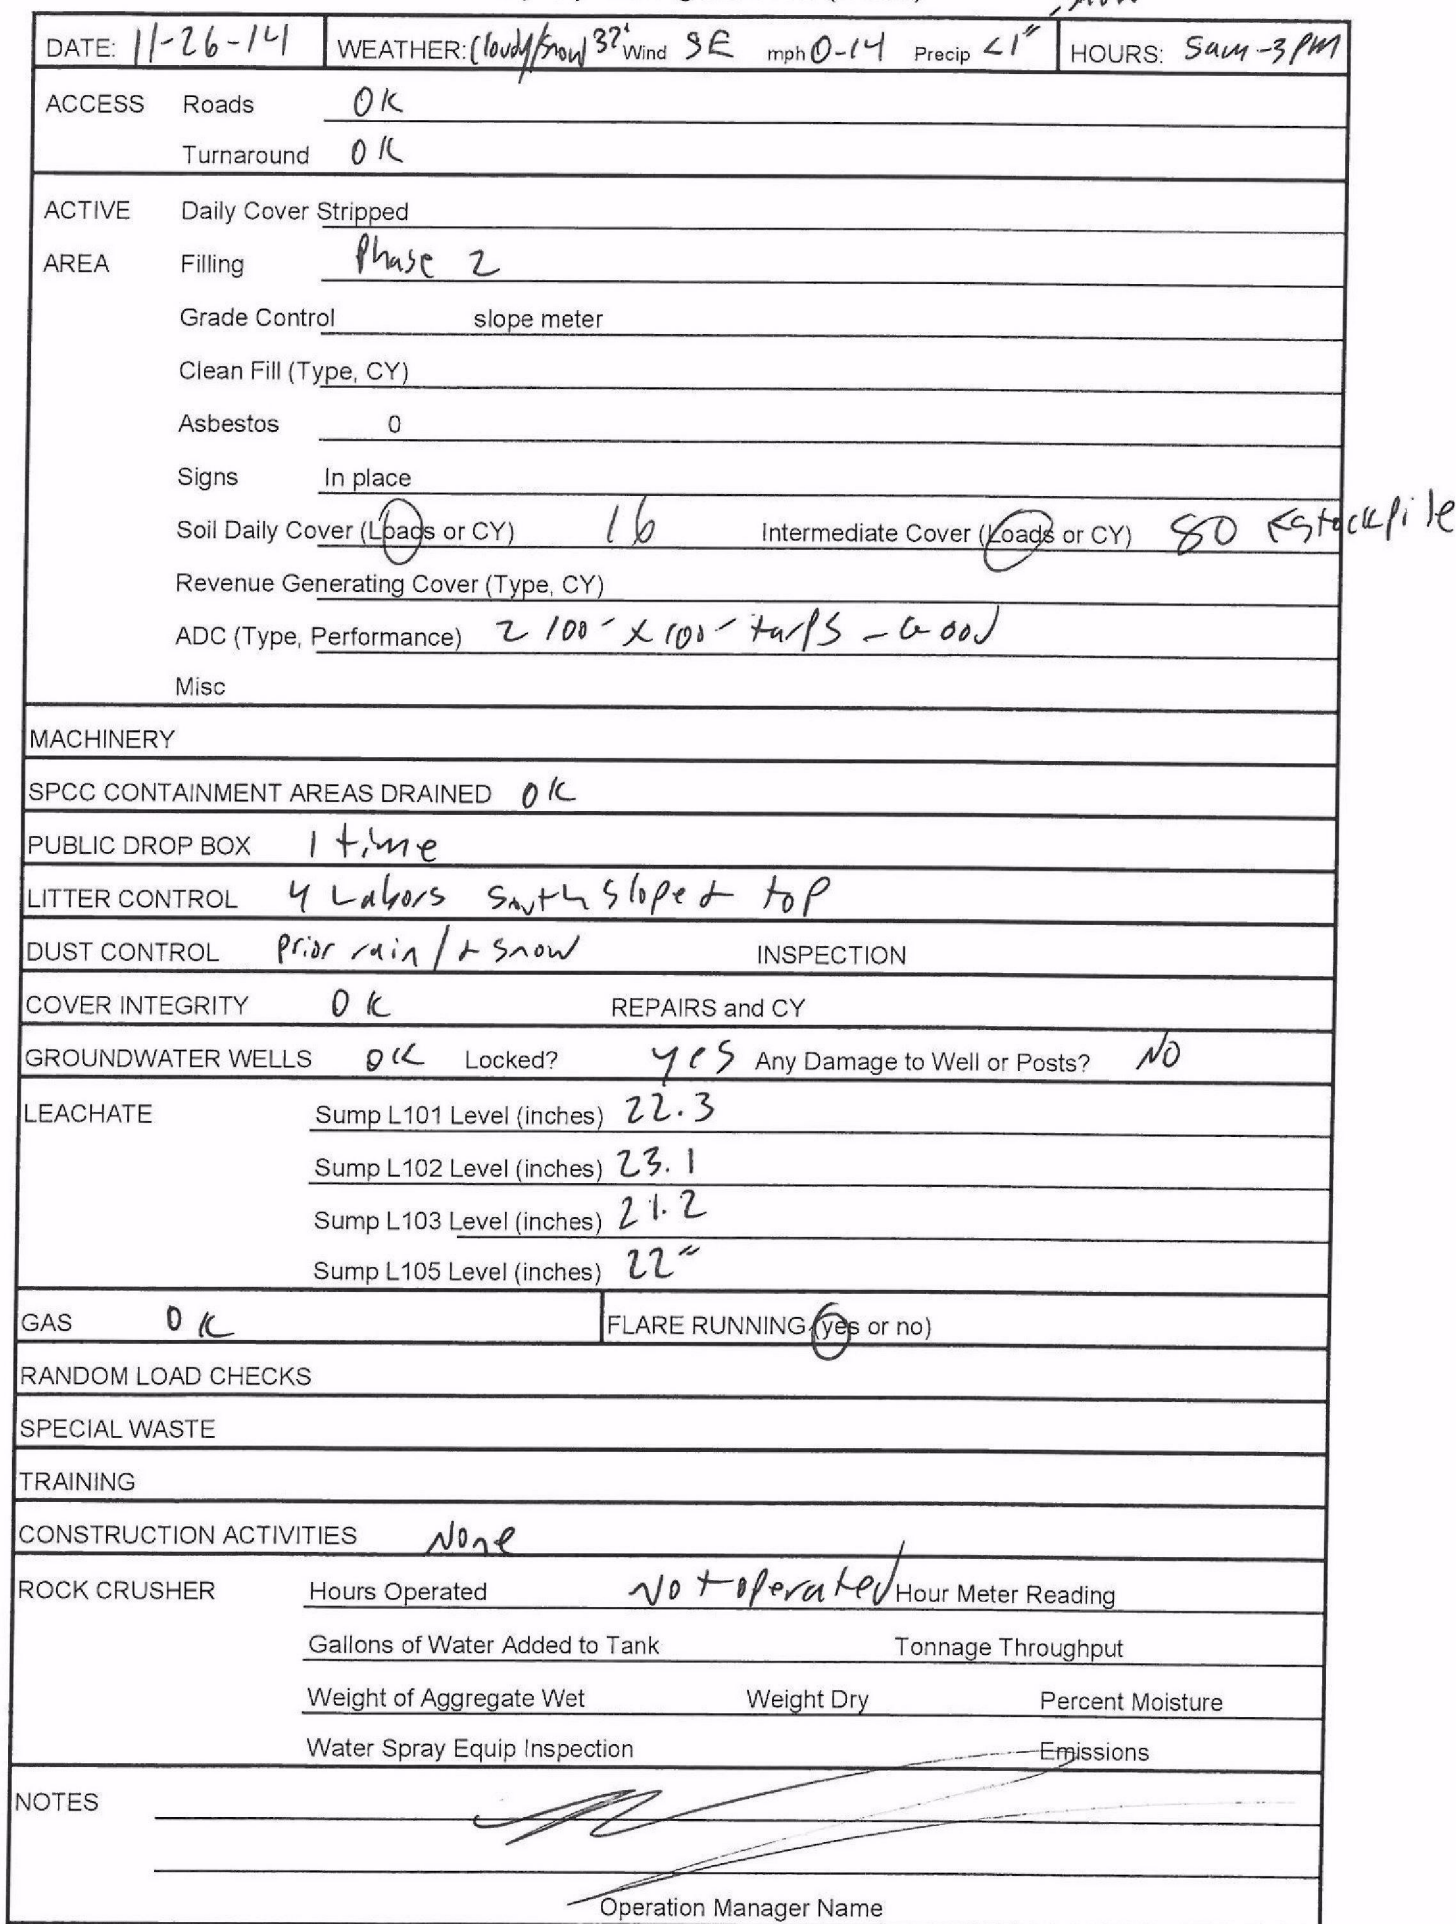 DATE: 11-26-14 WEATHER: Cloudy/Snow 32° Wind SE mph 0-14 Precip <1" HOURS: 5am-3PM
ACCESS Roads OK
Turnaround OK
ACTIVE Daily Cover Stripped
AREA Filling Phase 2
Grade Control slope meter
Clean Fill (Type, CY)
Asbestos 0
Signs In place
Soil Daily Cover (Loads or CY) 16 Intermediate Cover (Loads or CY) 80 <stockpile
Revenue Generating Cover (Type, CY)
ADC (Type, Performance) 2 100' x 100' tarps - Good
Misc
MACHINERY
SPCC CONTAINMENT AREAS DRAINED OK
PUBLIC DROP BOX 1 time
LITTER CONTROL 4 Labors South slope & top
DUST CONTROL Prior rain/& snow INSPECTION
COVER INTEGRITY OK REPAIRS and CY
GROUNDWATER WELLS OK Locked? yes Any Damage to Well or Posts? NO
LEACHATE Sump L101 Level (inches) 22.3
Sump L102 Level (inches) 23.1
Sump L103 Level (inches) 21.2
Sump L105 Level (inches) 22"
GAS OK FLARE RUNNING (yes or no)
RANDOM LOAD CHECKS
SPECIAL WASTE
TRAINING
CONSTRUCTION ACTIVITIES None
ROCK CRUSHER Hours Operated Not operated Hour Meter Reading
Gallons of Water Added to Tank Tonnage Throughput
Weight of Aggregate Wet Weight Dry Percent Moisture
Water Spray Equip Inspection Emissions
NOTES
Operation Manager Name